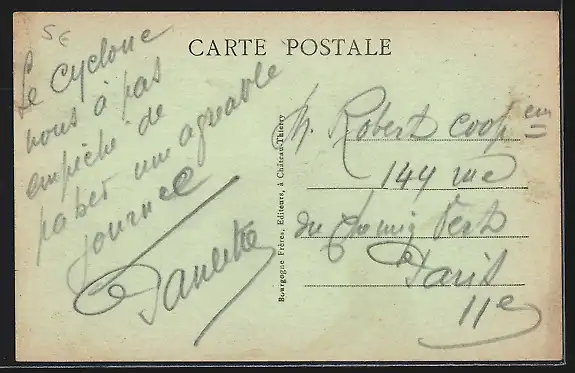 5€
CARTE POSTALE
Le cyclone
nous à pas
empêché de
passer une agréable
journée
Paulette
Bourgogne Frères, Editeurs, à Château-Thierry
M. Robert Cooper
144 rue
du Chemin Vert
Paris
11e